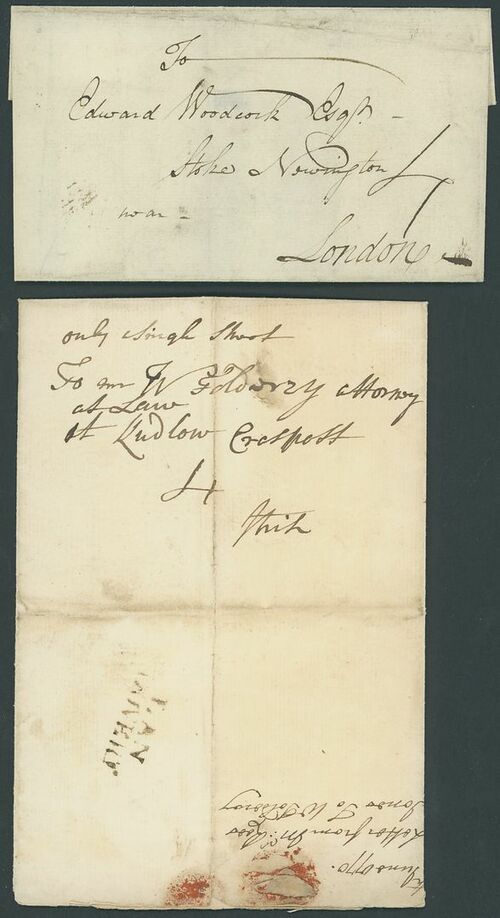 To
Edward Woodcock Esqr.
Stoke Newington
near
London
4
only a single Sheet
To mr W Toldervy attorney
at Law
at Ludlow Crosspost
4
LAN
June 1770.
Letter from Mr. Rees
Jones To W Toldervy